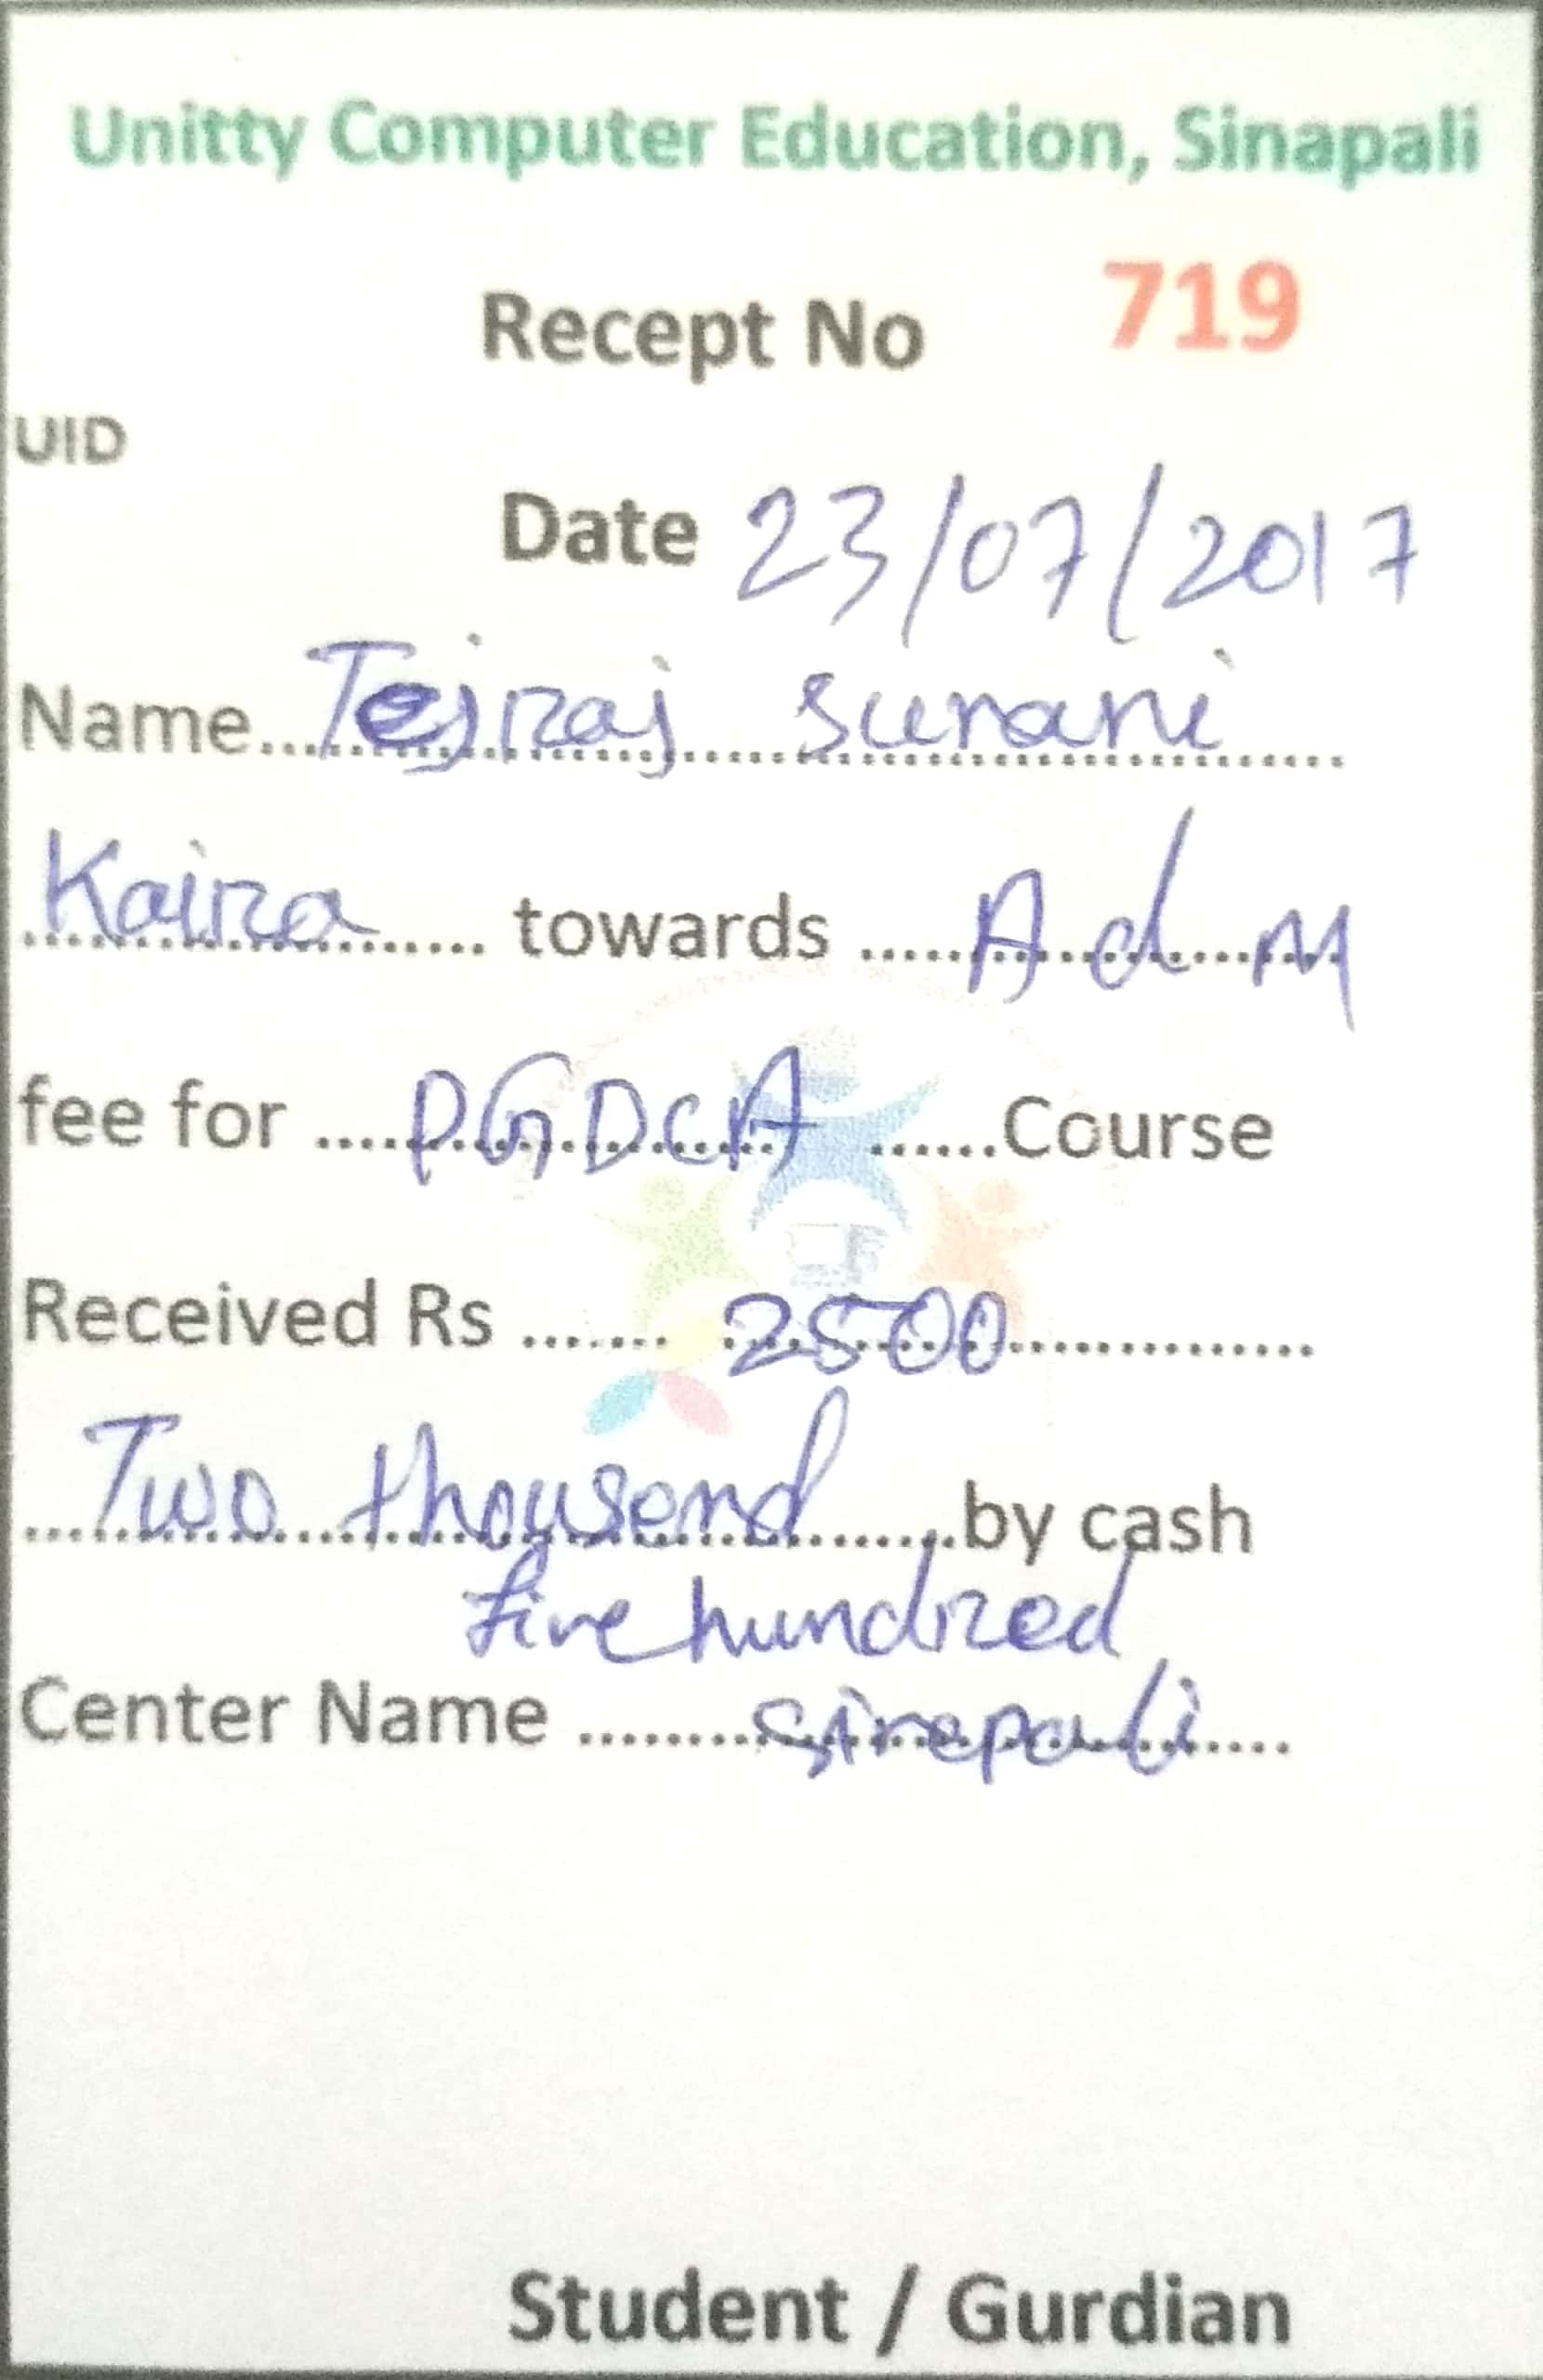 Unitty Computer Education, Sinapali
Recept No 719
UID
Date 23/07/2017
Name Tejraj Sunani
Kaira towards Adm
fee for PGDCA Course
Received Rs 2500
Two thousend by cash
five hundred
Center Name Sinepali
Student / Gurdian